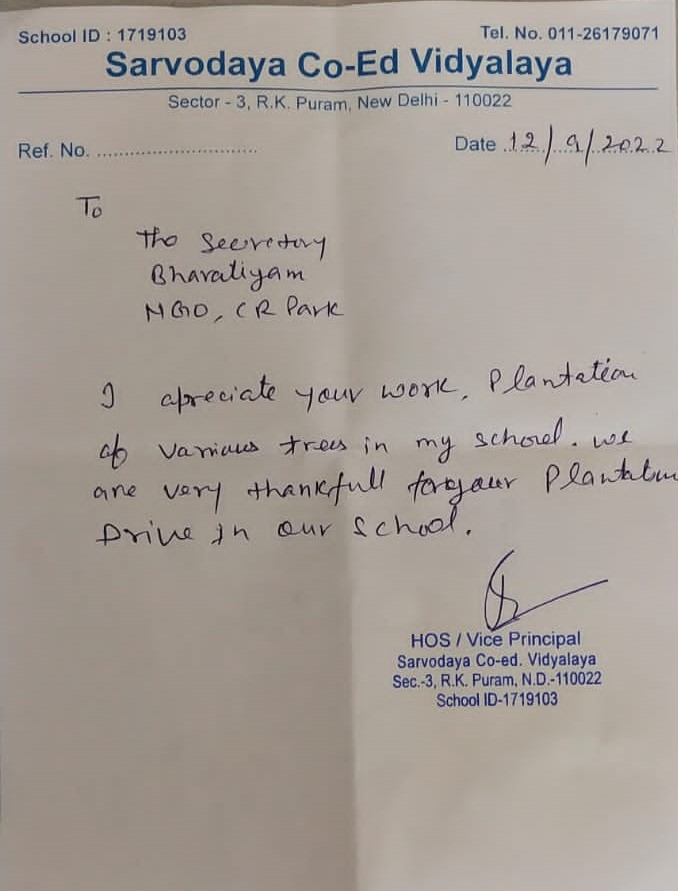 School ID : 1719103 Tel. No. 011-26179071
Sarvodaya Co-Ed Vidyalaya
Sector - 3, R.K. Puram, New Delhi - 110022
Ref. No. ............................... Date 12/9/2022
To
The Secretary
Bharatiyam
NGO, CR Park
I apreciate your work, Plantation
of various trees in my school. we
are very thankfull for your Plantation
Drive in our School.
HOS / Vice Principal
Sarvodaya Co-ed. Vidyalaya
Sec.-3, R.K. Puram, N.D.-110022
School ID-1719103